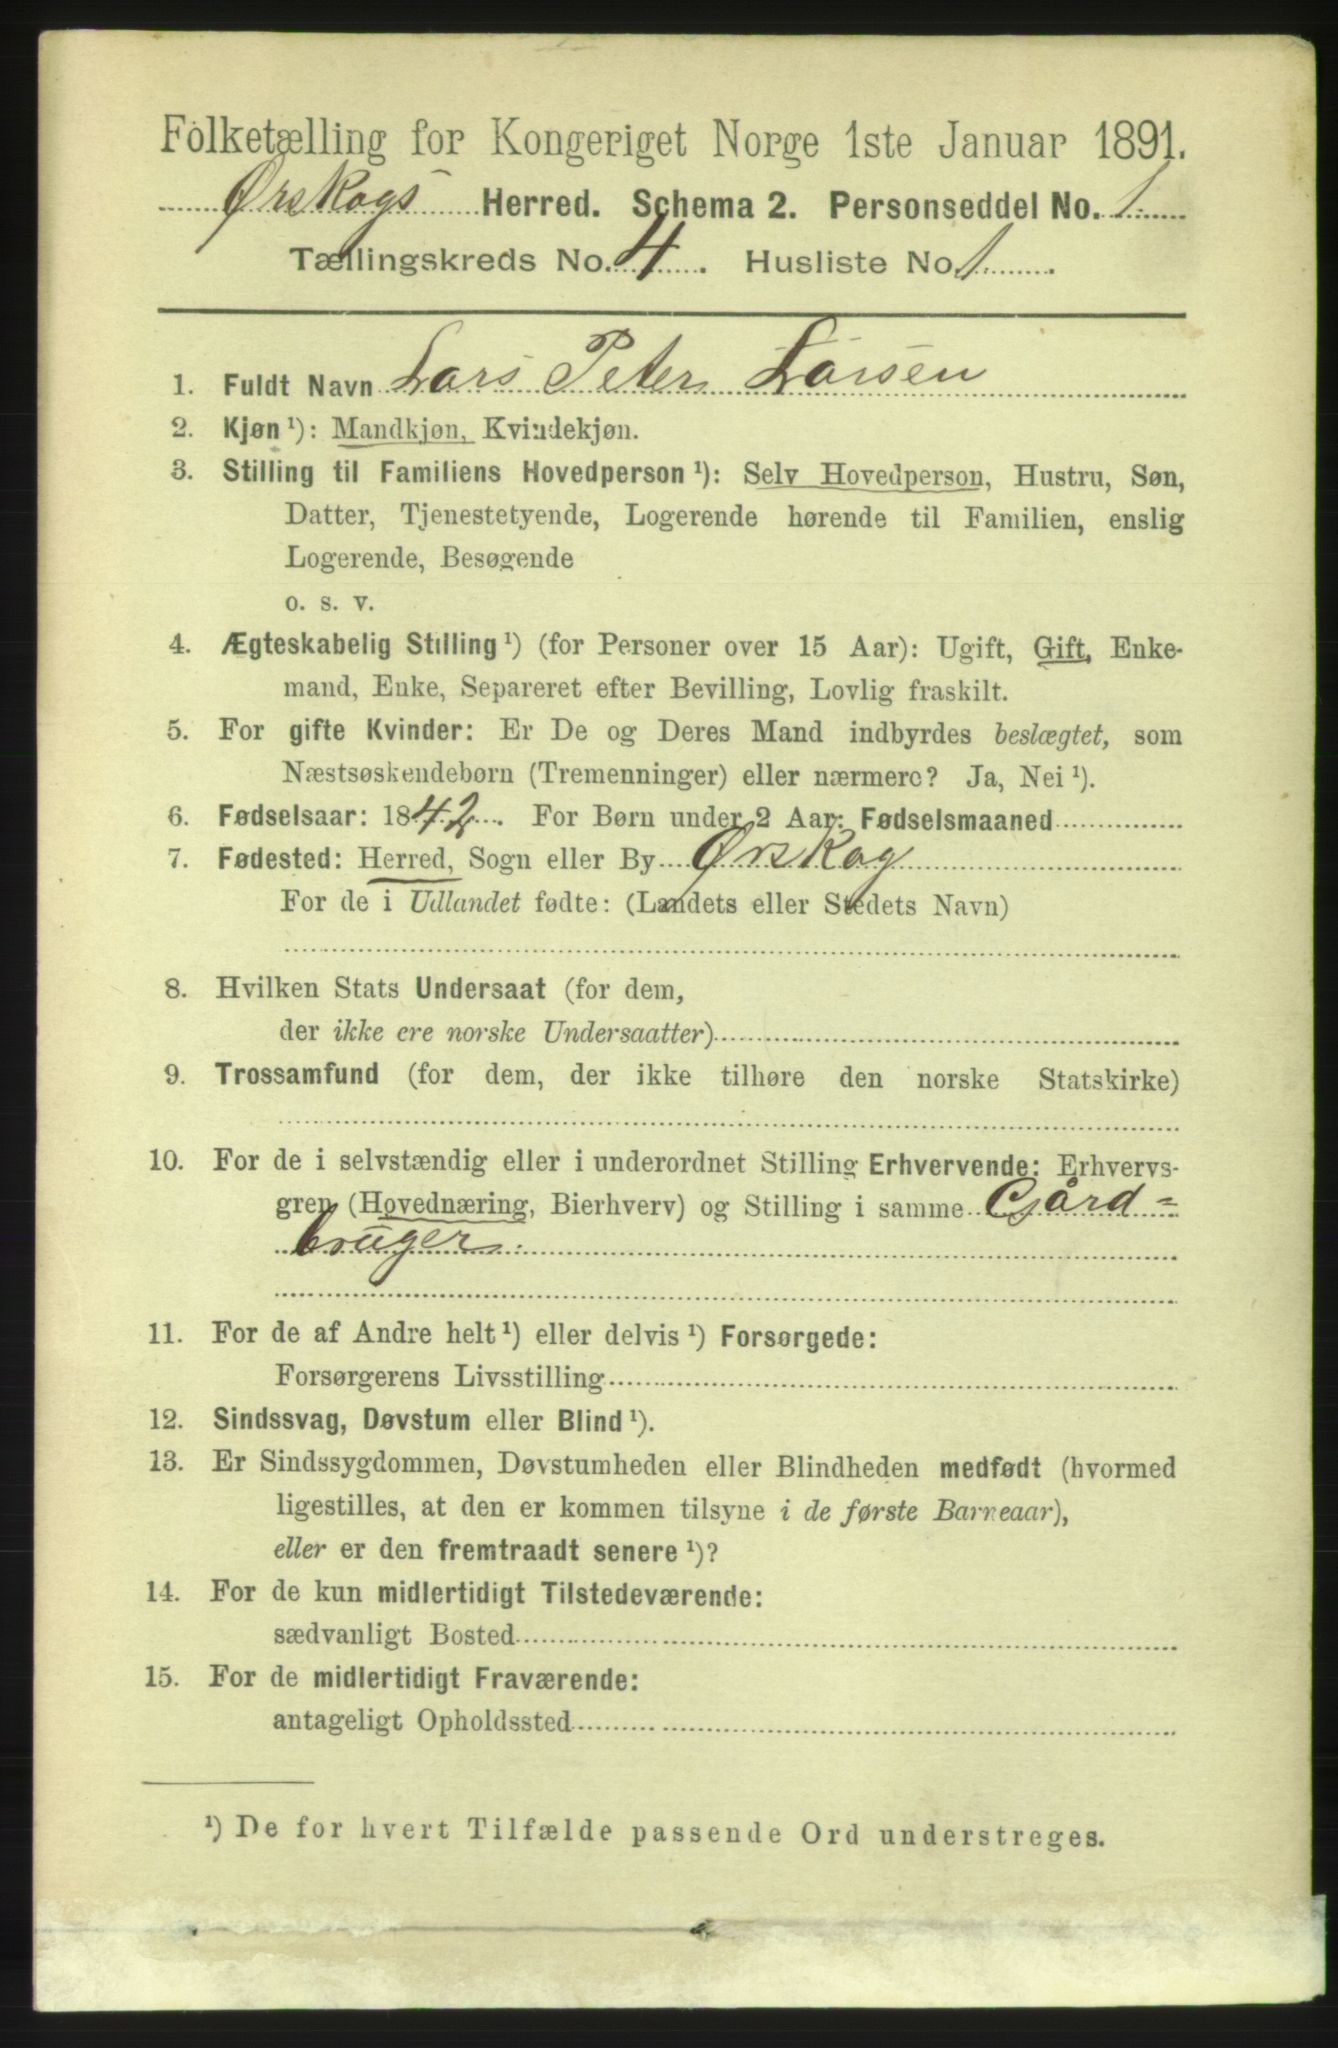 Folketælling for Kongeriget Norge 1ste Januar 1891.
Ørskogs Herred. Schema 2. Personseddel No. 1
Tællingskreds No. 4. Husliste No. 1.
1. Fuldt Navn Lars Peter Larsen
2. Kjøn ¹): Mandkjøn, Kvindekjøn.
3. Stilling til Familiens Hovedperson ¹): Selv Hovedperson, Hustru, Søn,
Datter, Tjenestetyende, Logerende hørende til Familien, enslig
Logerende, Besøgende
o. s. v.
4. Ægteskabelig Stilling ¹) (for Personer over 15 Aar): Ugift, Gift, Enke-
mand, Enke, Separeret efter Bevilling, Lovlig fraskilt.
5. For gifte Kvinder: Er De og Deres Mand indbyrdes beslægtet, som
Næstsøskendebørn (Tremenninger) eller nærmere? Ja, Nei ¹).
6. Fødselsaar: 1842. For Børn under 2 Aar: Fødselsmaaned
7. Fødested: Herred, Sogn eller By Ørskog
For de i Udlandet fødte: (Landets eller Stedets Navn)
8. Hvilken Stats Undersaat (for dem,
der ikke ere norske Undersaatter)
9. Trossamfund (for dem, der ikke tilhøre den norske Statskirke)
10. For de i selvstændig eller i underordnet Stilling Erhvervende: Erhvervs-
gren (Hovednæring, Bierhverv) og Stilling i samme Gård-
bruger.
11. For de af Andre helt ¹) eller delvis ¹) Forsørgede:
Forsørgerens Livsstilling
12. Sindssvag, Døvstum eller Blind ¹).
13. Er Sindssygdommen, Døvstumheden eller Blindheden medfødt (hvormed
ligestilles, at den er kommen tilsyne i de første Barneaar),
eller er den fremtraadt senere ¹)?
14. For de kun midlertidigt Tilstedeværende:
sædvanligt Bosted
15. For de midlertidigt Fraværende:
antageligt Opholdssted
¹) De for hvert Tilfælde passende Ord understreges.